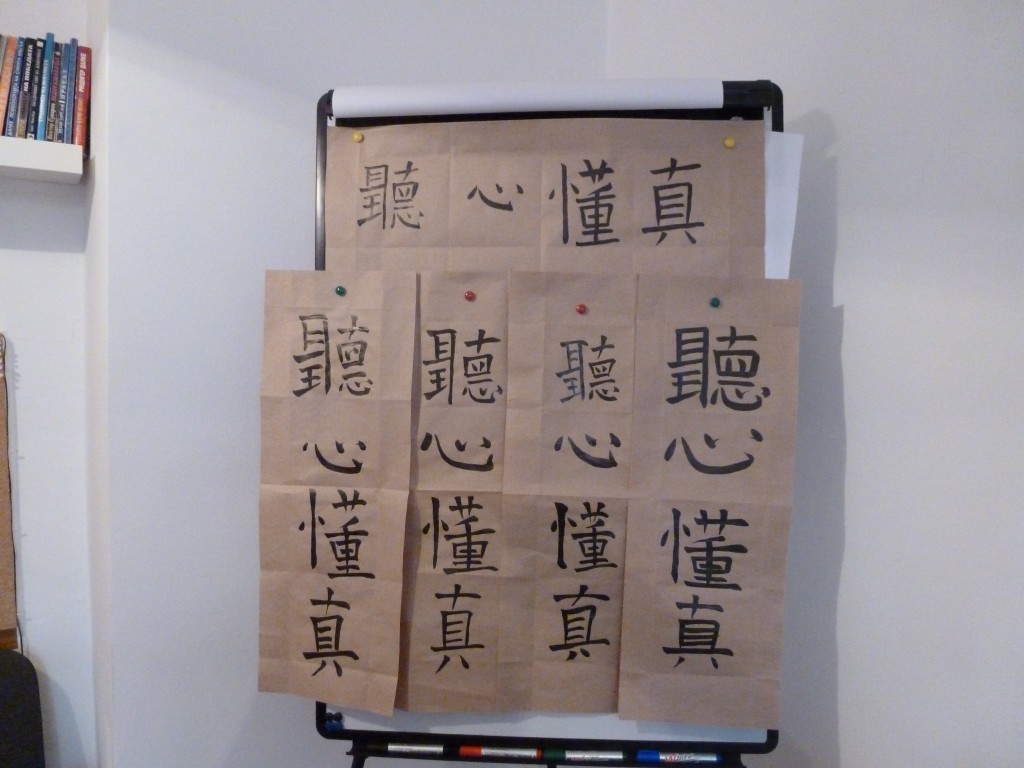 聽心懂真
聽心懂真
聽心懂真
聽心懂真
聽心懂真